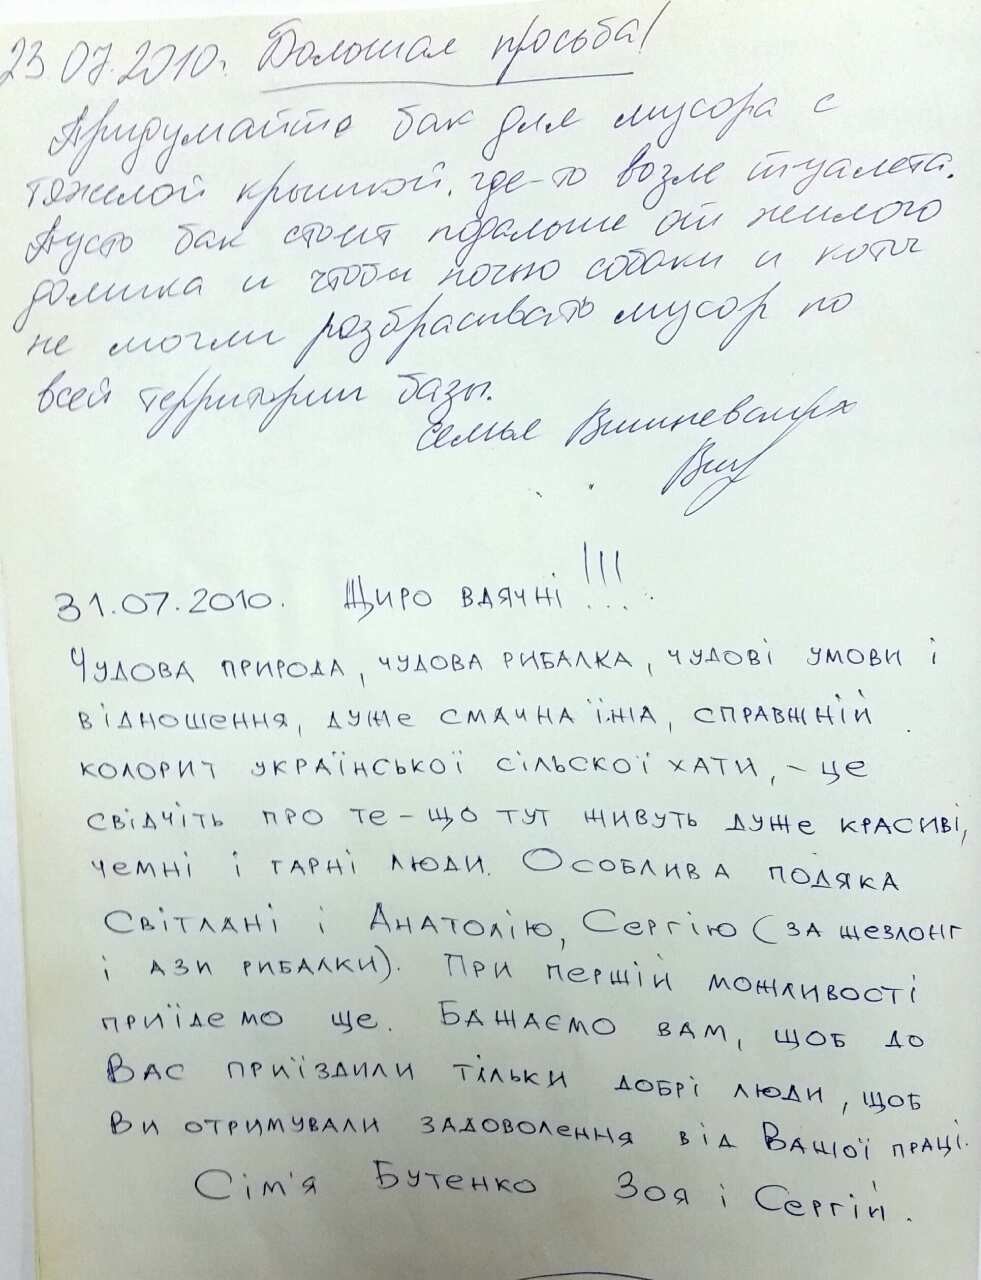 23.07.2010г. Большая просьба!
Придумайте бак для мусора с
тяжелой крышкой, где-то возле туалета.
Пусть бак стоит подальше от жилого
домика и чтобы ночью собаки и коты
не могли разбрасивать мусор по
всей территории базы.
Семья Вишневских
31.07.2010. Щиро вдячні!!!
Чудова природа, чудова рибалка, чудові умови і
відношення, дуже смачна їжа, справжній
колорит української сільскої хати, – це
свідчіть про те – що тут живуть дуже красиві,
чемні і гарні люди. Особлива подяка
Світлані і Анатолію, Сергію (за шезлонг
і ази рибалки). При першій можливості
приїдемо ще. Бажаємо вам, щоб до
Вас приїздили тільки добрі люди, щоб
Ви отримували задоволення від Вашої праці.
Сім'я Бутенко Зоя і Сергій.